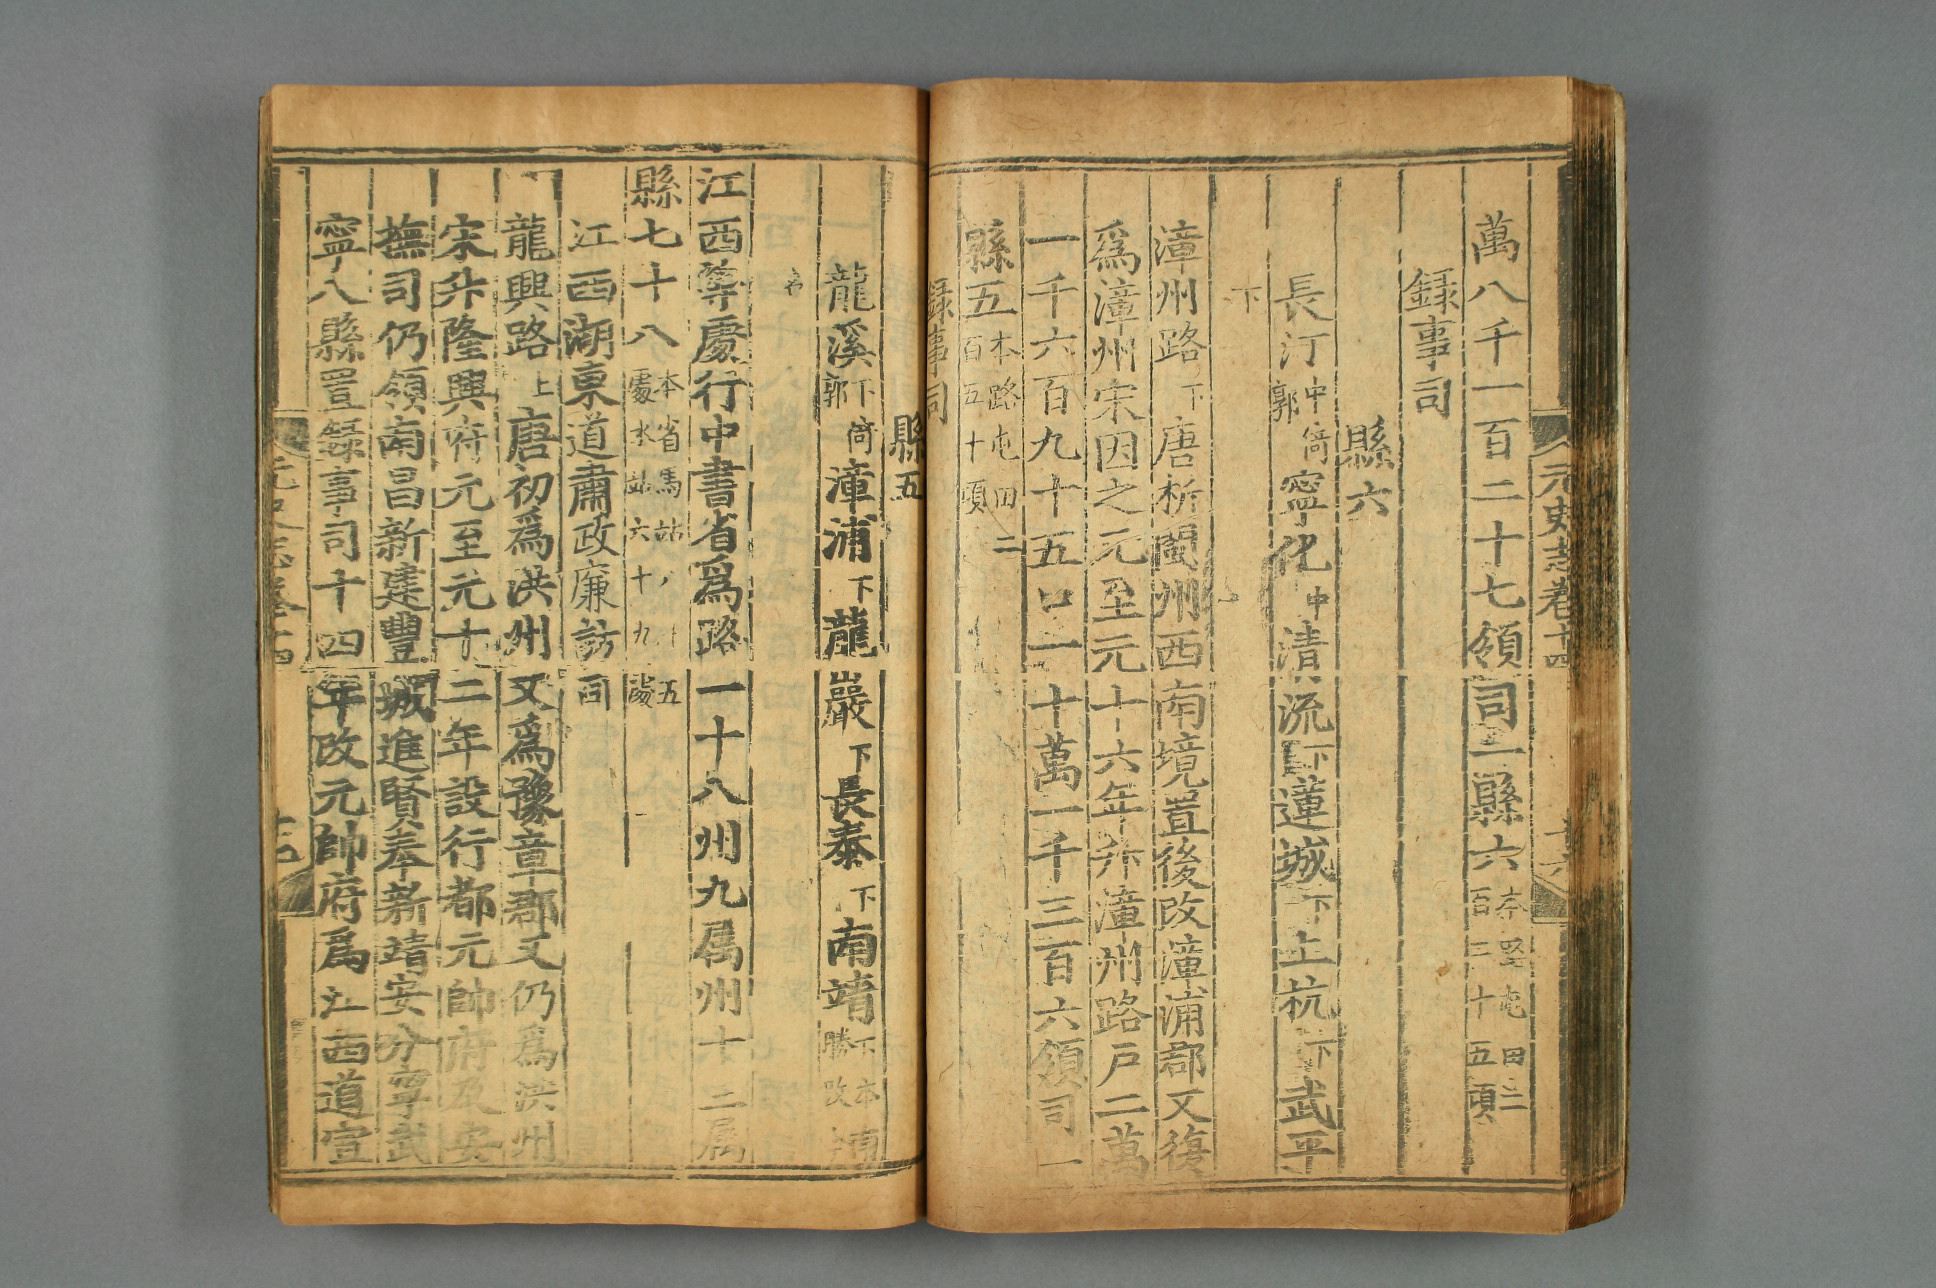 元史志卷十四
萬八千一百二十七領司一縣六本路屯田二百二十五頃
録事司
縣六
長汀中倚郭寧化中清流下蓮城下上杭下武平
下
漳州路下唐析閩州西南境置後改漳浦郡又復
爲漳州宋因之元至元十六年升漳州路戶二萬
一千六百九十五口一十萬一千三百六領司一
縣五本路屯田二百五十頃
録事司
縣五
龍溪下倚郭漳浦下龍巖下長泰下南靖下本南勝改
江西等處行中書省爲路一十八州九属州十三属
縣七十八本省馬站八十五處水站六十九處
江西湖東道肅政廉訪司
龍興路上唐初爲洪州又爲豫章郡又仍爲洪州
宋升隆興府元至元十二年設行都元帥府及安
撫司仍領南昌新建豐城進賢奉新靖安分寧武
寧八縣置録事司十四年改元帥府爲江西道宣
元史志卷十四